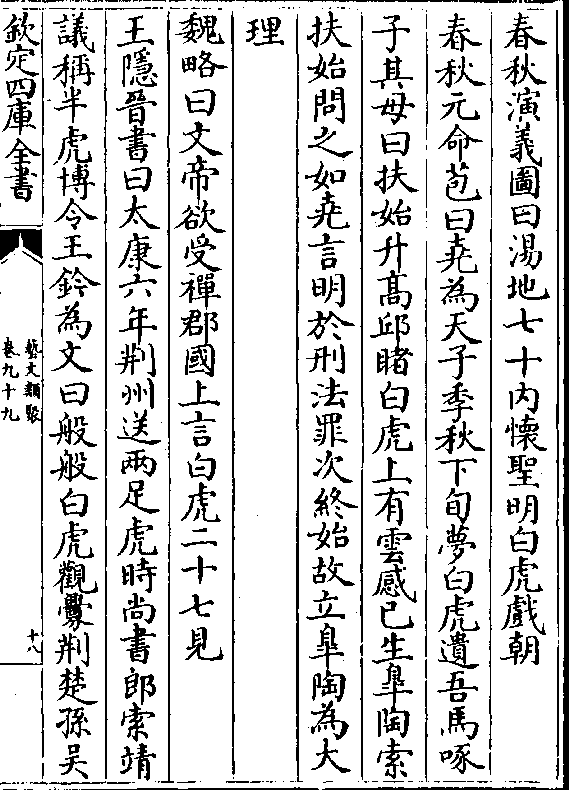 春秋演義圖曰湯地七十内懷聖明白虎戲朝
春秋元命苞曰堯為天子季秋下旬夢白虎遺吾馬啄
子其母曰扶始升髙邱睹白虎上有雲感已生臯陶索
扶始問之如堯言明於刑法罪次終始故立臯陶為大
理
魏略曰文帝欲受禪郡國上言白虎二十七見
王隱晉書曰太康六年荆州送兩足虎時尚書郎索靖
議稱半虎博令王鈴為文曰般般白虎觀釁荆楚孫吴
欽定四庫全書
藝文類聚
卷九十九
十八